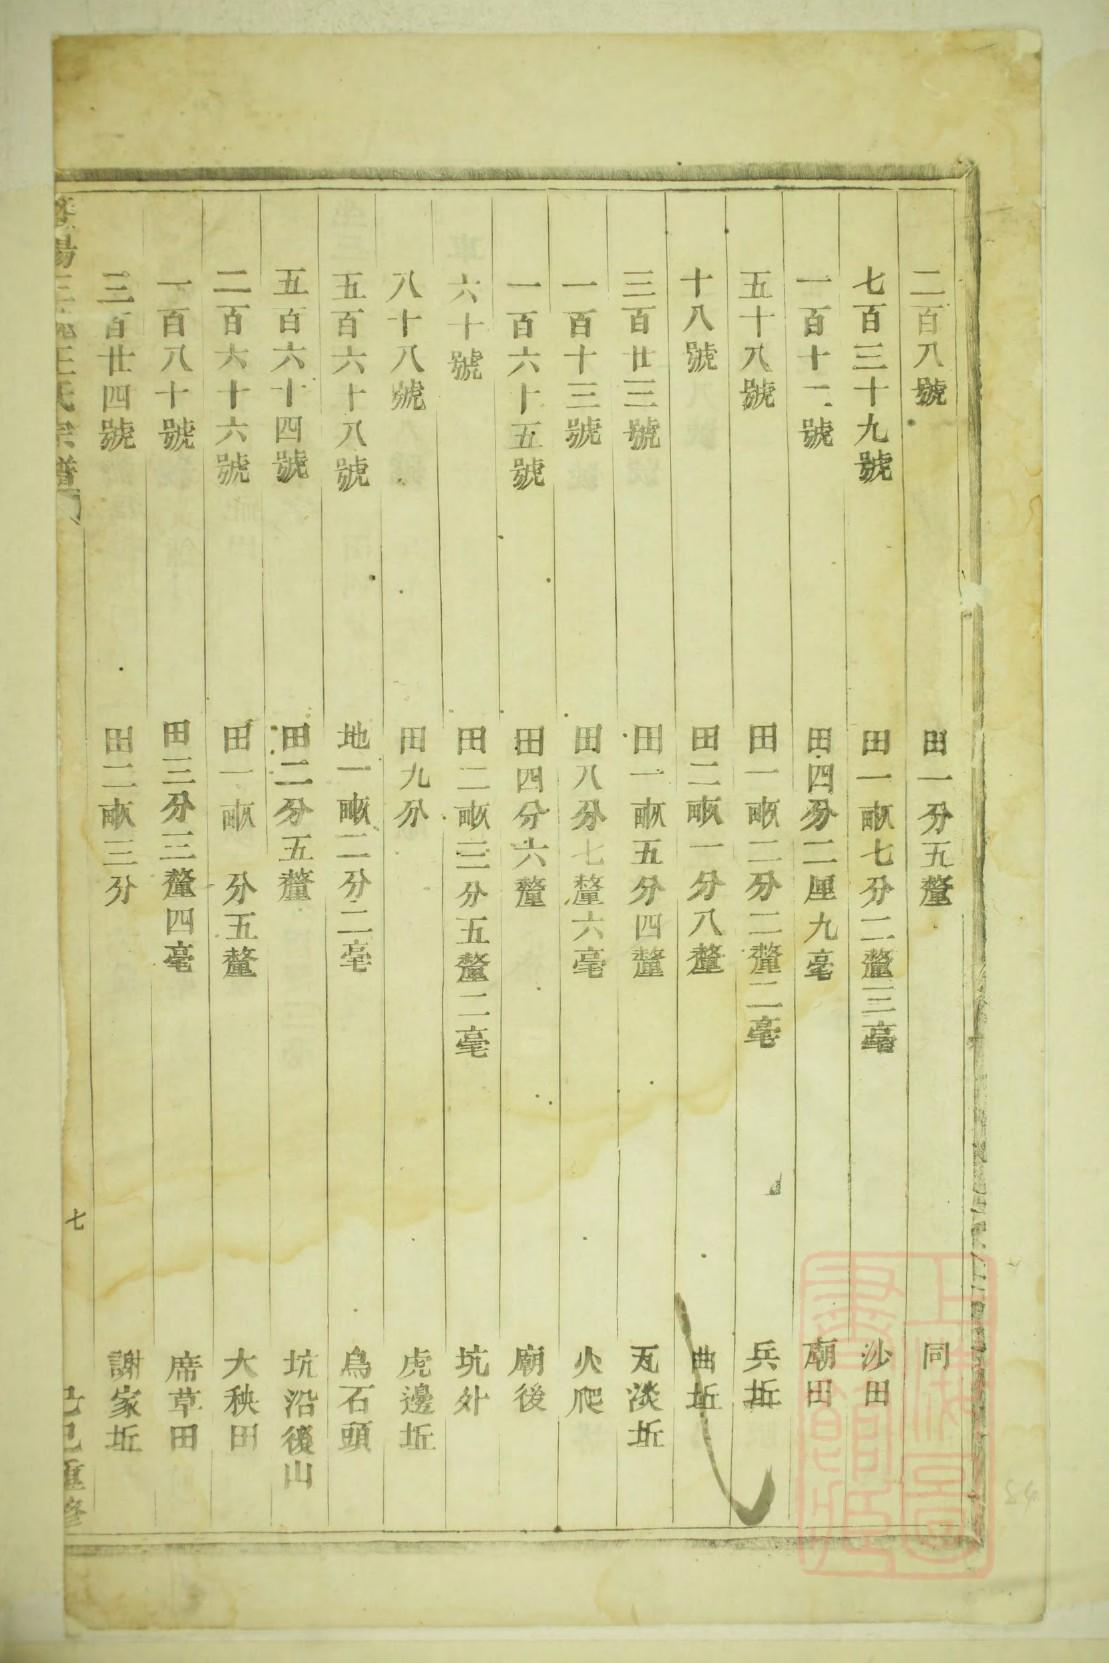 二百八號 田一分五釐 同
七百三十九號 田一畝七分二釐三毫 沙田
一百十二號 田四分二厘九毫 廟田
五十八號 田一畝二分二釐二毫 兵坵
十八號 田二畝一分八釐 曲坵
三百廿三號 田一畝五分四釐 瓦淡坵
一百十三號 田八分七釐六毫 火爬
一百六十五號 田四分六釐 廟後
六十號 田二畝三分五釐二毫 坑外
八十八號 田九分 虎邊坵
五百六十八號 地一畝二分二毫 烏石頭
五百六十四號 田二分五釐 坑沿後山
二百六十六號 田一畝 分五釐 大秧田
一百八十號 田三分三釐四毫 席草田
三百廿四號 田二畝三分 謝家坵
陽 王氏宗譜 七 己巳重修
上海圖書館藏